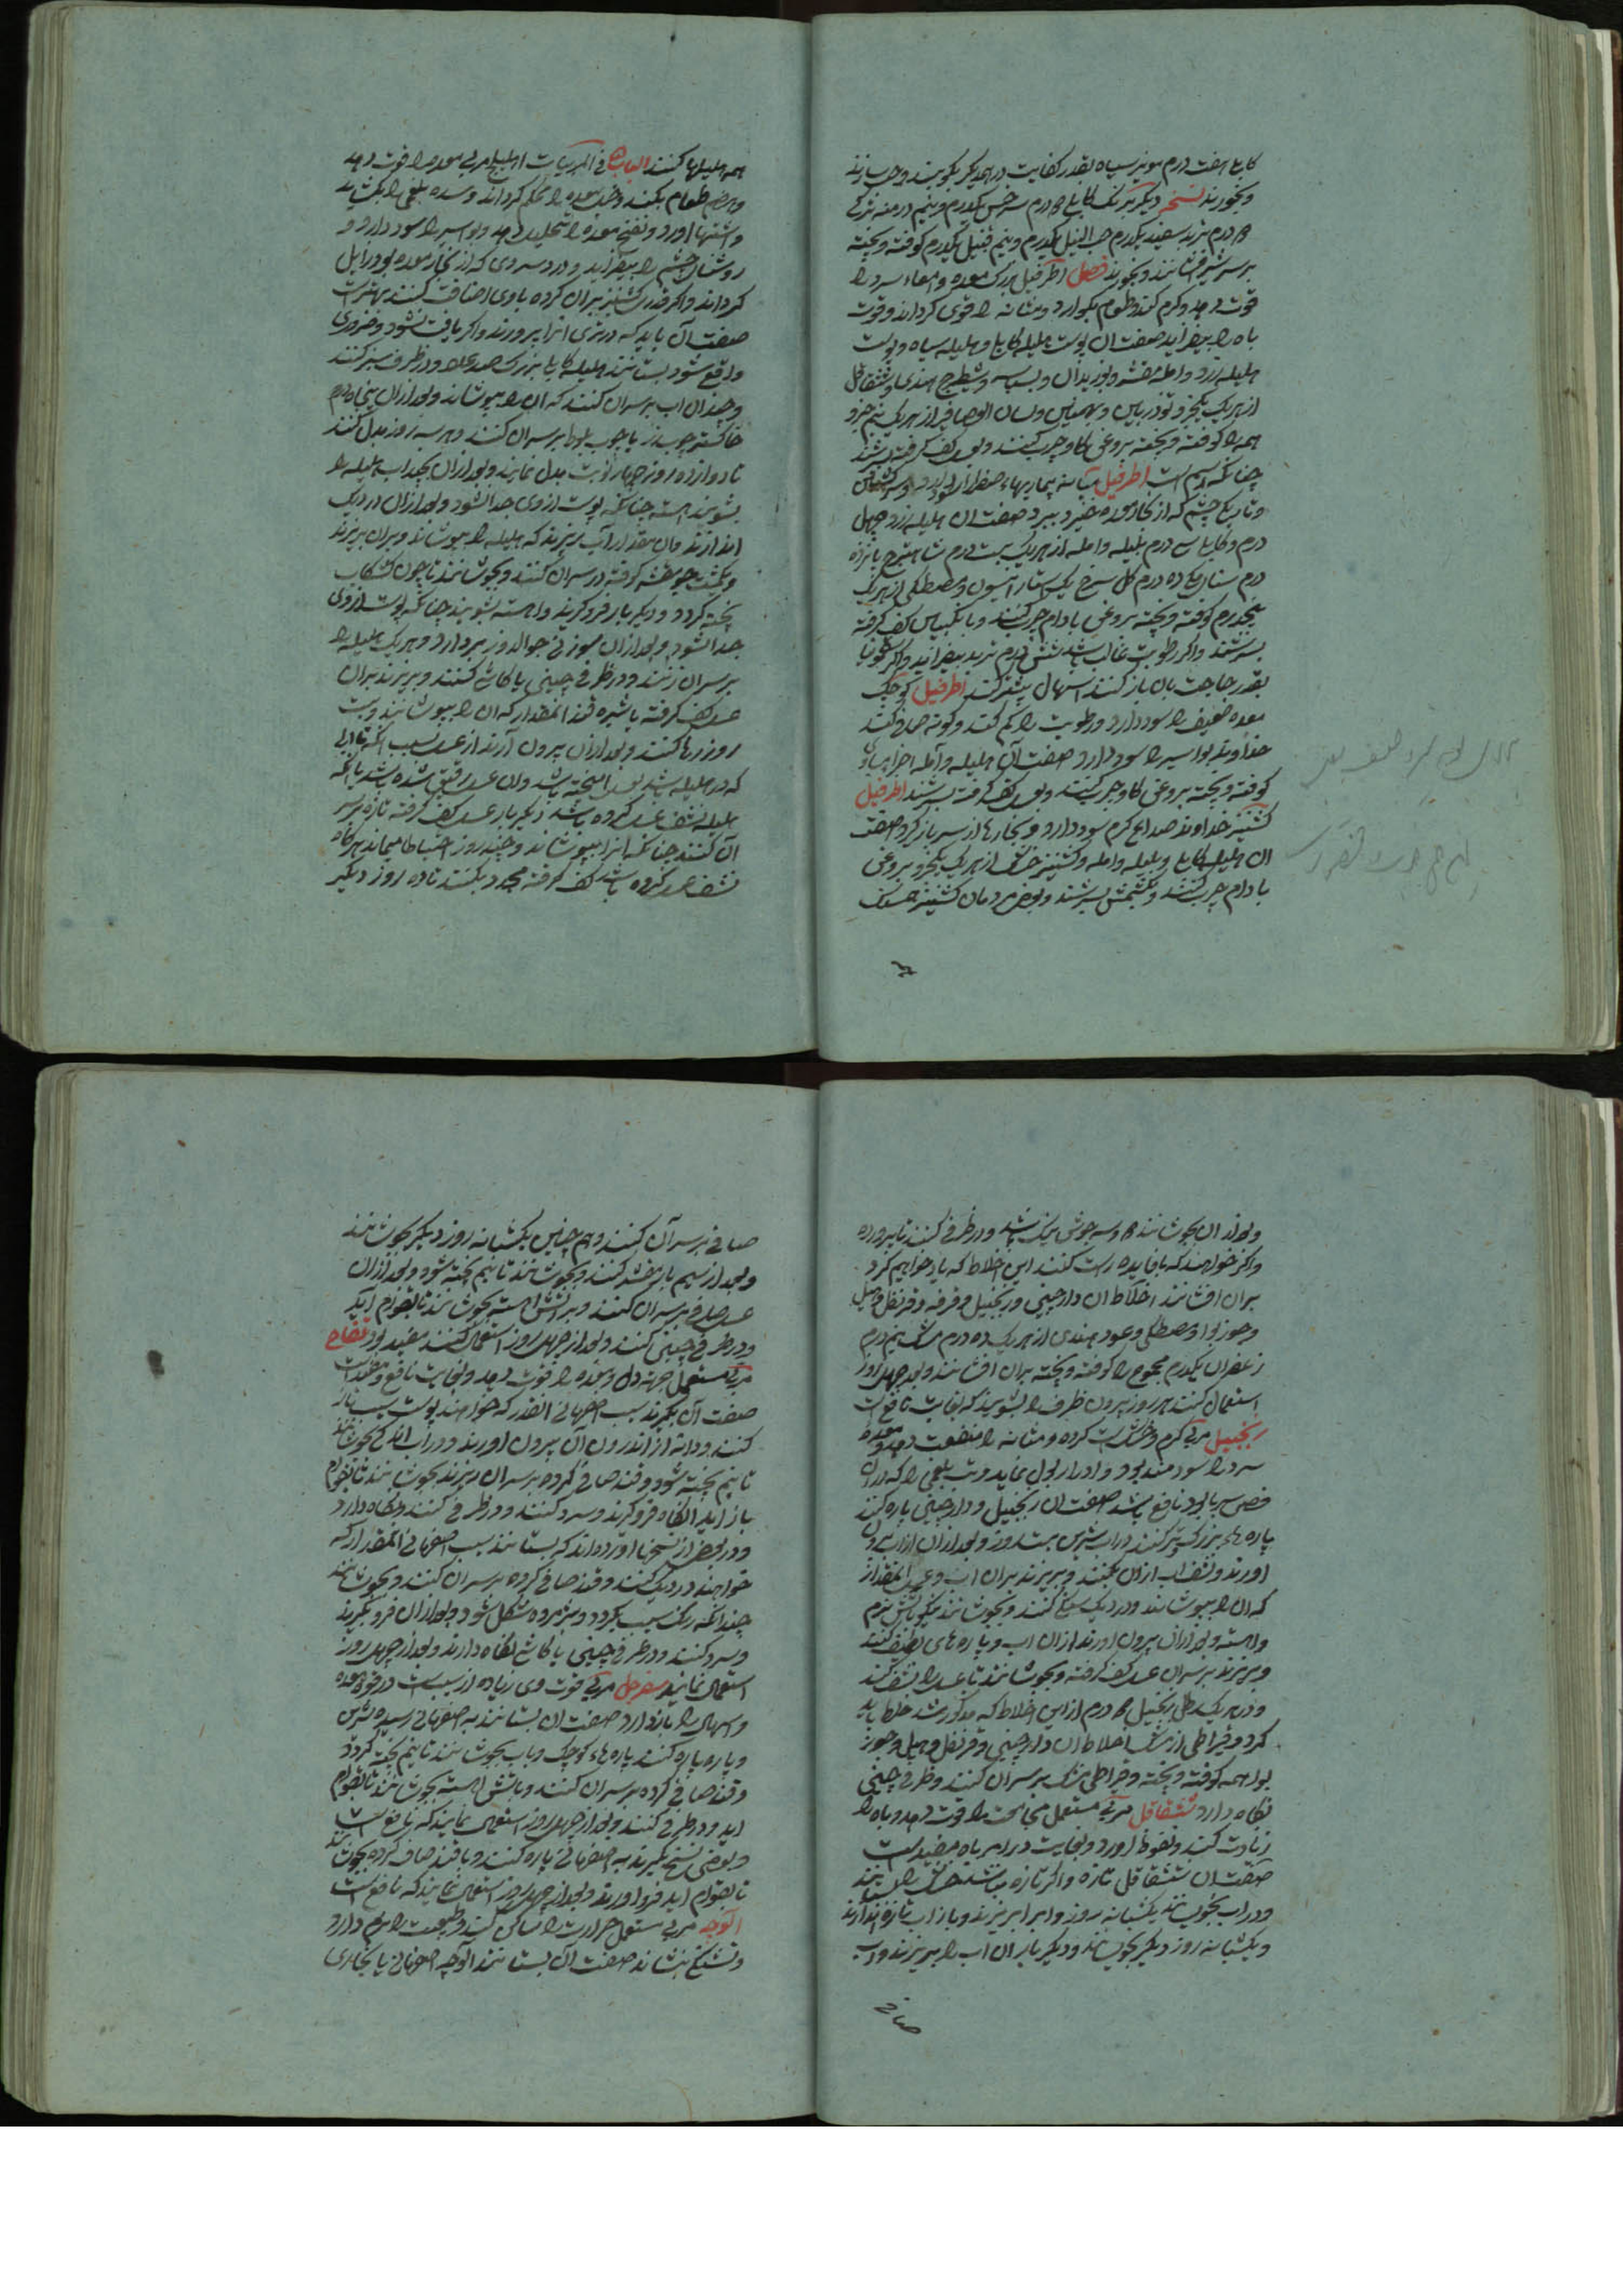 کابلی هفت درم مویز سیاه بقدر کفایت در همدیکر بکوبند و حب سازند
و بخورند نسخهٔ دیکر برنک کابلی درم سرخس یکدرم و نیم درمنه ترکی
درم تربد سفید یکدرم حب النیل یکدرم و نیم قنبیل یکدرم کوفته و بیخته
بر سر شیر افشانند و بخورند فصل اطریفل بزرک معده و امعاء سرد را
قوت دهد و کرم کند و طعام بکوارد و مثانه را قوی کرداند و قوت
باه را بیفزاید صفت آن پوست هلیله کابلی و هلیله سیاه و پوست
هلیله زرد و امله مقشر و بوزیدان و بسباسه و شیطرج هندی و شقاقل
از هر یک یکجزو تودریین و بهمنین و لسان العصافیر از هر یک نیم جزو
همه را کوفته و بیخته بروغن کاو چرب کنند و بعسل کف کرفته بسرشند
چنانکه رسم است اطریفل
و تاریکی چشم که از بخار معده خیزد ببرد صفت ان هلیله زرد چهل
درم و کابلی سی درم بلیله و امله از هر یک بیست درم شاهترج پانزده
درم سنا مکی ده درم کل سرخ انیسون و مصطکی از هر یک
پنجدرم کوفته و بیخته بروغن بادام چرب کنند و بانکبین کف کرفته
بسرشند و اکر رطوبت غالب باشد شش درم تربد بیفزایند و اکر سقمونیا
بقدر حاجت بان یار کنند اسهال بیشتر کند اطریفل کوچک
معده ضعیف را سود دارد و رطوبت را کم کند و کونه صافی کند
خداوند بواسیر را سود دارد صفت آن هلیله و آمله اجزا مساوی
کوفته و بیخته بروغن کاو چرب کنند و بعسل کف کرفته بسرشند اطریفل
کشنیز خداوند صداع کرم سود دارد و بخارها از سر باز کرد صفت
ان هلیله کابلی و بلیله و امله و کشنیز خشک از هر یک یکجزو بروغن
بادام چرب کنند و بسرشند و بعضی مردمان کشنیز
همه هلیلها کنند الباب فی المربیات اهلیلج مربی معده را قوت دهد
و هضم طعام بکند و خمل معده را محکم کرداند و سده بلغمی را بکشاید
و اشتها اورد و نفخ معده را تحلیل دهد و بواسیر را سود دارد و
روشنائی چشم را بیفزاید و درد سردی که از بخار معده بود زایل
کرداند و اکر قدری کشنیز بریان کرده باوی اضافت کنند بهتر است
صفت آن باید که در تری انرا بپرورند و اکر یافت نشود و ضروری
واقع شود بستانند هلیله کابلی بزرک صد عدد و در ظرف سبز کنند
و چندان اب بر سر ان کنند که ان را بپوشاند و بعد از ان پنجاه درم
خاکستر چوب رز یا چوب بلوط بر سر ان کنند و هر سه روز بدل کنند
تا دوازده روز چهار نوبت بدل نمایند و بعد از ان بچند اب هلیله را
بشویند آهسته چنانکه پوست از وی جدا نشود و بعد از ان در دیک
اندازند و ان مقدار آب بریزند که هلیله را بپوشاند و بران بریزند
و یکمشت جو مقشر کرفته در سر ان کنند و بجوشانند تا چون کشکاب
پخته کردد و دیکر بار فرو کیرند و اهسته بشویند چنانکه پوست از وی
جدا نشود و بعد از ان سوزنی جوالدوز بردارد و هر یک هلیله را
بر سر ان زنند و در ظرفی چینی یا کاشی کنند و بریزند بران
عسل کف کرفته یا شیره قند انمقدار که ان را بپوشانند و بیست
روز رها کنند و بعد از ان بیرون آرند از عسل بسبب انکه تا آبی
که در هلیله باشد بعسل امیخته باشد و ان عسل رقیق شده باشد یا انکه
هلیله نشف عسل کرده باشد دیکر بار عسل کف کرفته تازه بر سر
آن کنند چنانکه انرا بپوشاند و چند روز احتیاط مینماید هر کاه
نشف عسل کرده باشد کف کرفته مجدد بکنند تا ده روز دیکر
و بعد از ان بجوشانند دو سه جوش و در ظرفی کنند تا پرورده
و اکر خواهند که بافایده راست کنند این اخلاط که یاد خواهیم کرد
بران افشانند اخلاط ان دارچینی و زنجبیل و قرفه و قرنفل و هیل
و جوز بوا و مصطکی و عود هندی از هر یک ده درم مشک نیم درم
زعفران یکدرم مجموع را کوفته و بیخته بران افشانند و بعد چهل روز
استعمال کنند هر روز بیرون ظرف را بشویند که بغایت نافع است
زنجبیل مربی کرم و خشک است کرده و مثانه را منفعت دهد و معده
سرد را سودمند بود و ادرار بول نماید و تب بلغمی را که در ان
نافع باشد صفت ان زنجبیل و دارچینی پاره کنند
پاره های بزرک کنند در اب شیرین بیست روز و بعد از ان از اب بیرون
اورند و نشف اب ازان بکنند و بریزند بران اب و عسل انمقدار
که ان را بپوشانند و در دیک سنکی کنند و بجوشانند نیکو باتش نرم
و اهسته و بعد از ان بیرون اورند از ان اب و پاره های لطیف کنند
و بریزند بر سر ان عسل کف کرفته و بجوشانند تا عسل را نشف کند
و در هر یک رطل زنجبیل درم از این اخلاط که مذکور شد خلط باید
کرد و قیراطی از مشک اخلاط ان دارچینی و قرنفل و هیل و جوز
بوا همه کوفته و بیخته و قیراطی مشک بر سر ان کنند و ظرفی چینی
نکاه دارد شقاقل مربی مستعمل مجامعت را قوت دهد و باه را
زیادت کند و نعوظ اورد و بغایت در امر باه مفید است
صفت ان شقاقل تازه و اکر تازه نباشد خشک را بستانند
و در اب بخیسانند یکشبانه روز و ابرا بریزند و باز اب تازه اندازند
و یکشبانه روز دیکر بخیسانند و دیکر بار ان اب را بریزند و اب
صافی
صافی بر سر آن کنند و هم چنین یکشبانه روز دیکر بجوشانند
و بعد از سیم بار مقشر کنند و بجوشانند تا نیم پخته شود و بعد از ان
عسل صافی بر سر ان کنند و بر آتش اهسته بجوشانند تا بقوام آید
و در ظرفی چینی کنند و بعد از چهل روز استعمال کنند مفید بود تفاح
مربی مستعمل جهته دل و معده را قوت دهد و بغایت نافع و مفید است
صفت آن بکیرند سیب اصفهانی انقدر که خواهند پوست سیب باز
کنند و دانه از اندرون آن بیرون اورند و در اب اندکی بجوشانند
تا نیم پخته شود و قند صافی کرده بر سر ان ریزند بجوشانند تا بقوام
باز آید انکاه فرو کیرند و سرد کنند و در ظرفی کنند و نکاه دارد
و در بعضی از نسخها اورده اند که بستانند سیب اصفهانی انمقدار که
خواهند در دیک کنند و قند صافی کرده بر سر ان کنند و بجوشانند
چندانکه رنک سیب بکردد و پژمرده شکل شود و بعد از ان فرو بکیرند
و سرد کنند و در ظرفی چینی یا کاشی نکاه دارند و بعد از چهل روز
استعمال نمایند سفرجل مربی قوت وی زیاده از سیب است در قوت معده
و اسهال را باز دارد صفت ان بستانند به اصفهانی رسیده شیرین
و پاره پاره کنند پاره های کوچک و باب بجوشانند تا نیم پخت کردد
و قند صافی کرده بر سر ان کنند و باتش اهسته بجوشانند تا بقوام
اید و در ظرفی کنند و بعد از چهل روز استعمال نمایند که نافع است
و بعضی نسخ بکیرند به اصفهانی پاره کنند و با قند صافی کرده بجوشانند
تا بقوام اید فرو اورند و بعد از چهل روز استعمال نمایند که نافع است
آلوچه مربی مستعمل حرارت را ساکن کند و طبیعت را نرم دارد
و تشنکی بنشاند صفت ان بستانند آلوچه اصفهانی یا بخاری